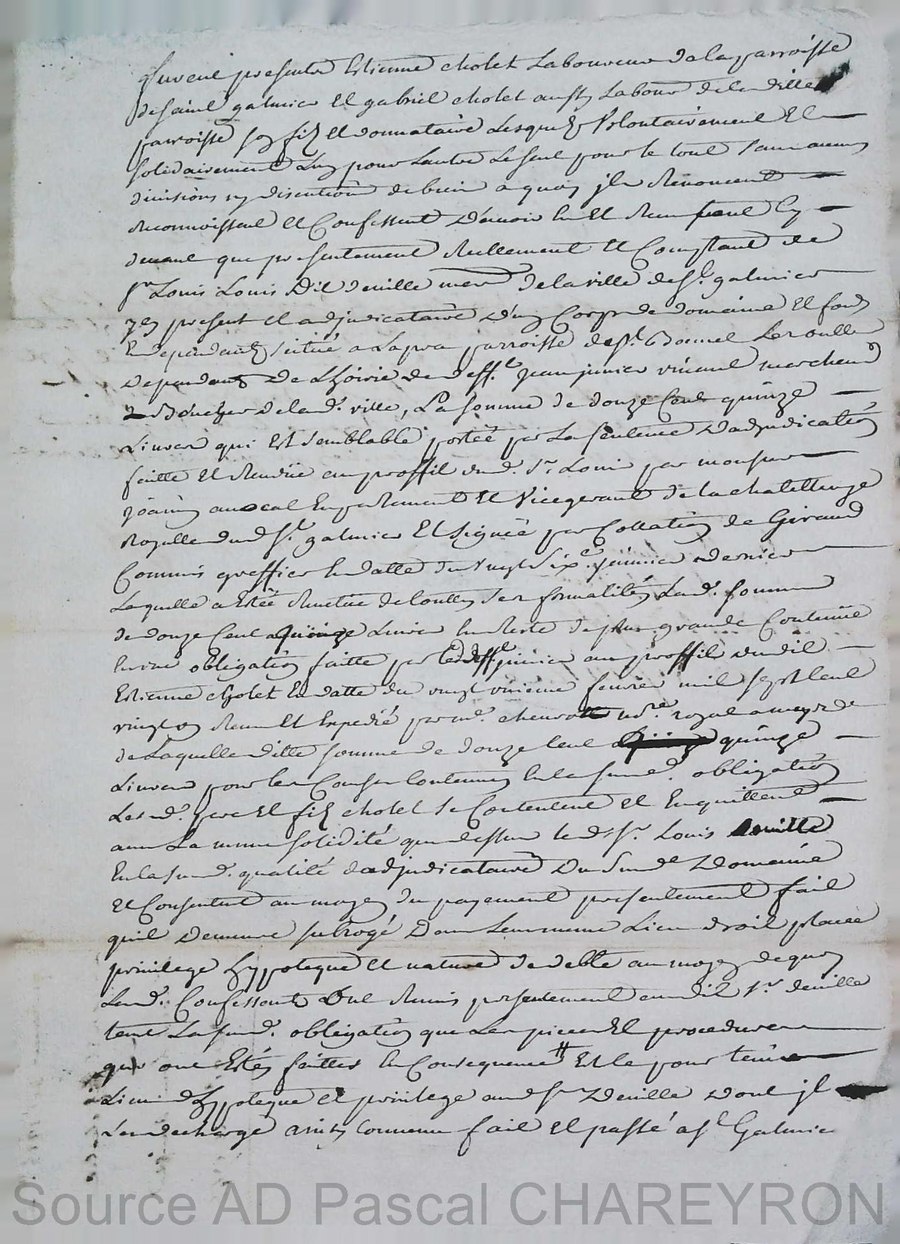 furent presents Estienne cholet Laboureur de la parroisse
de saint galmier et gabriel cholet aussy Labour de la ditte
parroisse son fiz et donnataire Lesquelz Volontairement Et
solidairement Lun pour Lautre Le seul pour le tout sans aucune
divisions ny discution de bien a quoy jls Renoncent
Reconnoissent et Confessent D'avoir heu et Receu
devant que presentement Reellement et Comptant de
sr Louis Louis Dit deville march de la ville de st galmier
jcy present et adjudicataire D'un Corps de domaine et fonds
En dependants situé a Lapra parroisse de st Bonnet Les oulles
Dependants De L'hoirie de deff.t Jean junier vivant marchand
Boucher de lad. ville, La somme de douze Cent quinze
Livres qui Est semblable portée par La sentence D'adjudication
faitte et Rendüe au proffit dud. sr. Louis par monsieur
avocat En parlement Et Vicegerant de la chatellenye
Royalle dud. st. galmier et signée par Collation de Giraud
Commis greffier En datte du vingt six.e janvier dernier
Laquelle a Estée Revetue de touttes ses formalités Lad. somme
de douze Cent quinze Livres En Reste de plus grande Contenüe
En une obligation faitte par led. deff.t junier au proffit dudit
Estienne cholet En datte du vingt unieme fevrier mil sept Cent
vingt Receu et Expedié par me. chevrott nore. royal a veyre
de Laquelle ditte somme de douze Cent quinze
Livres pour les Causes Contenues En la susd. obligation
Lesd. pere et fiz cholet se Contentent et En quittent
avec La meme solidité que dessus led. sr. Louis deville
En la susd. qualité d'adjudicataire Du susd. Domaine
Et Consentent au moyen du payement presentement fait
quil Demeure subrogé Dans Leur meme Lieu droit place
privilege hypoteque et nature de debte au moyen de quoy
Lesd. Confessants ont Remis presentement audit sr. deville
tant La susd. obligation que Les pieces Et procedures
qui ont Estés faittes En Consequence # Et ce pour tenir
Lieu d'hypoteque et privilege aud sr Deville Dont jl
Les decharge ainsy Convenu fait et passé a st Galmier
Source AD Pascal CHAREYRON